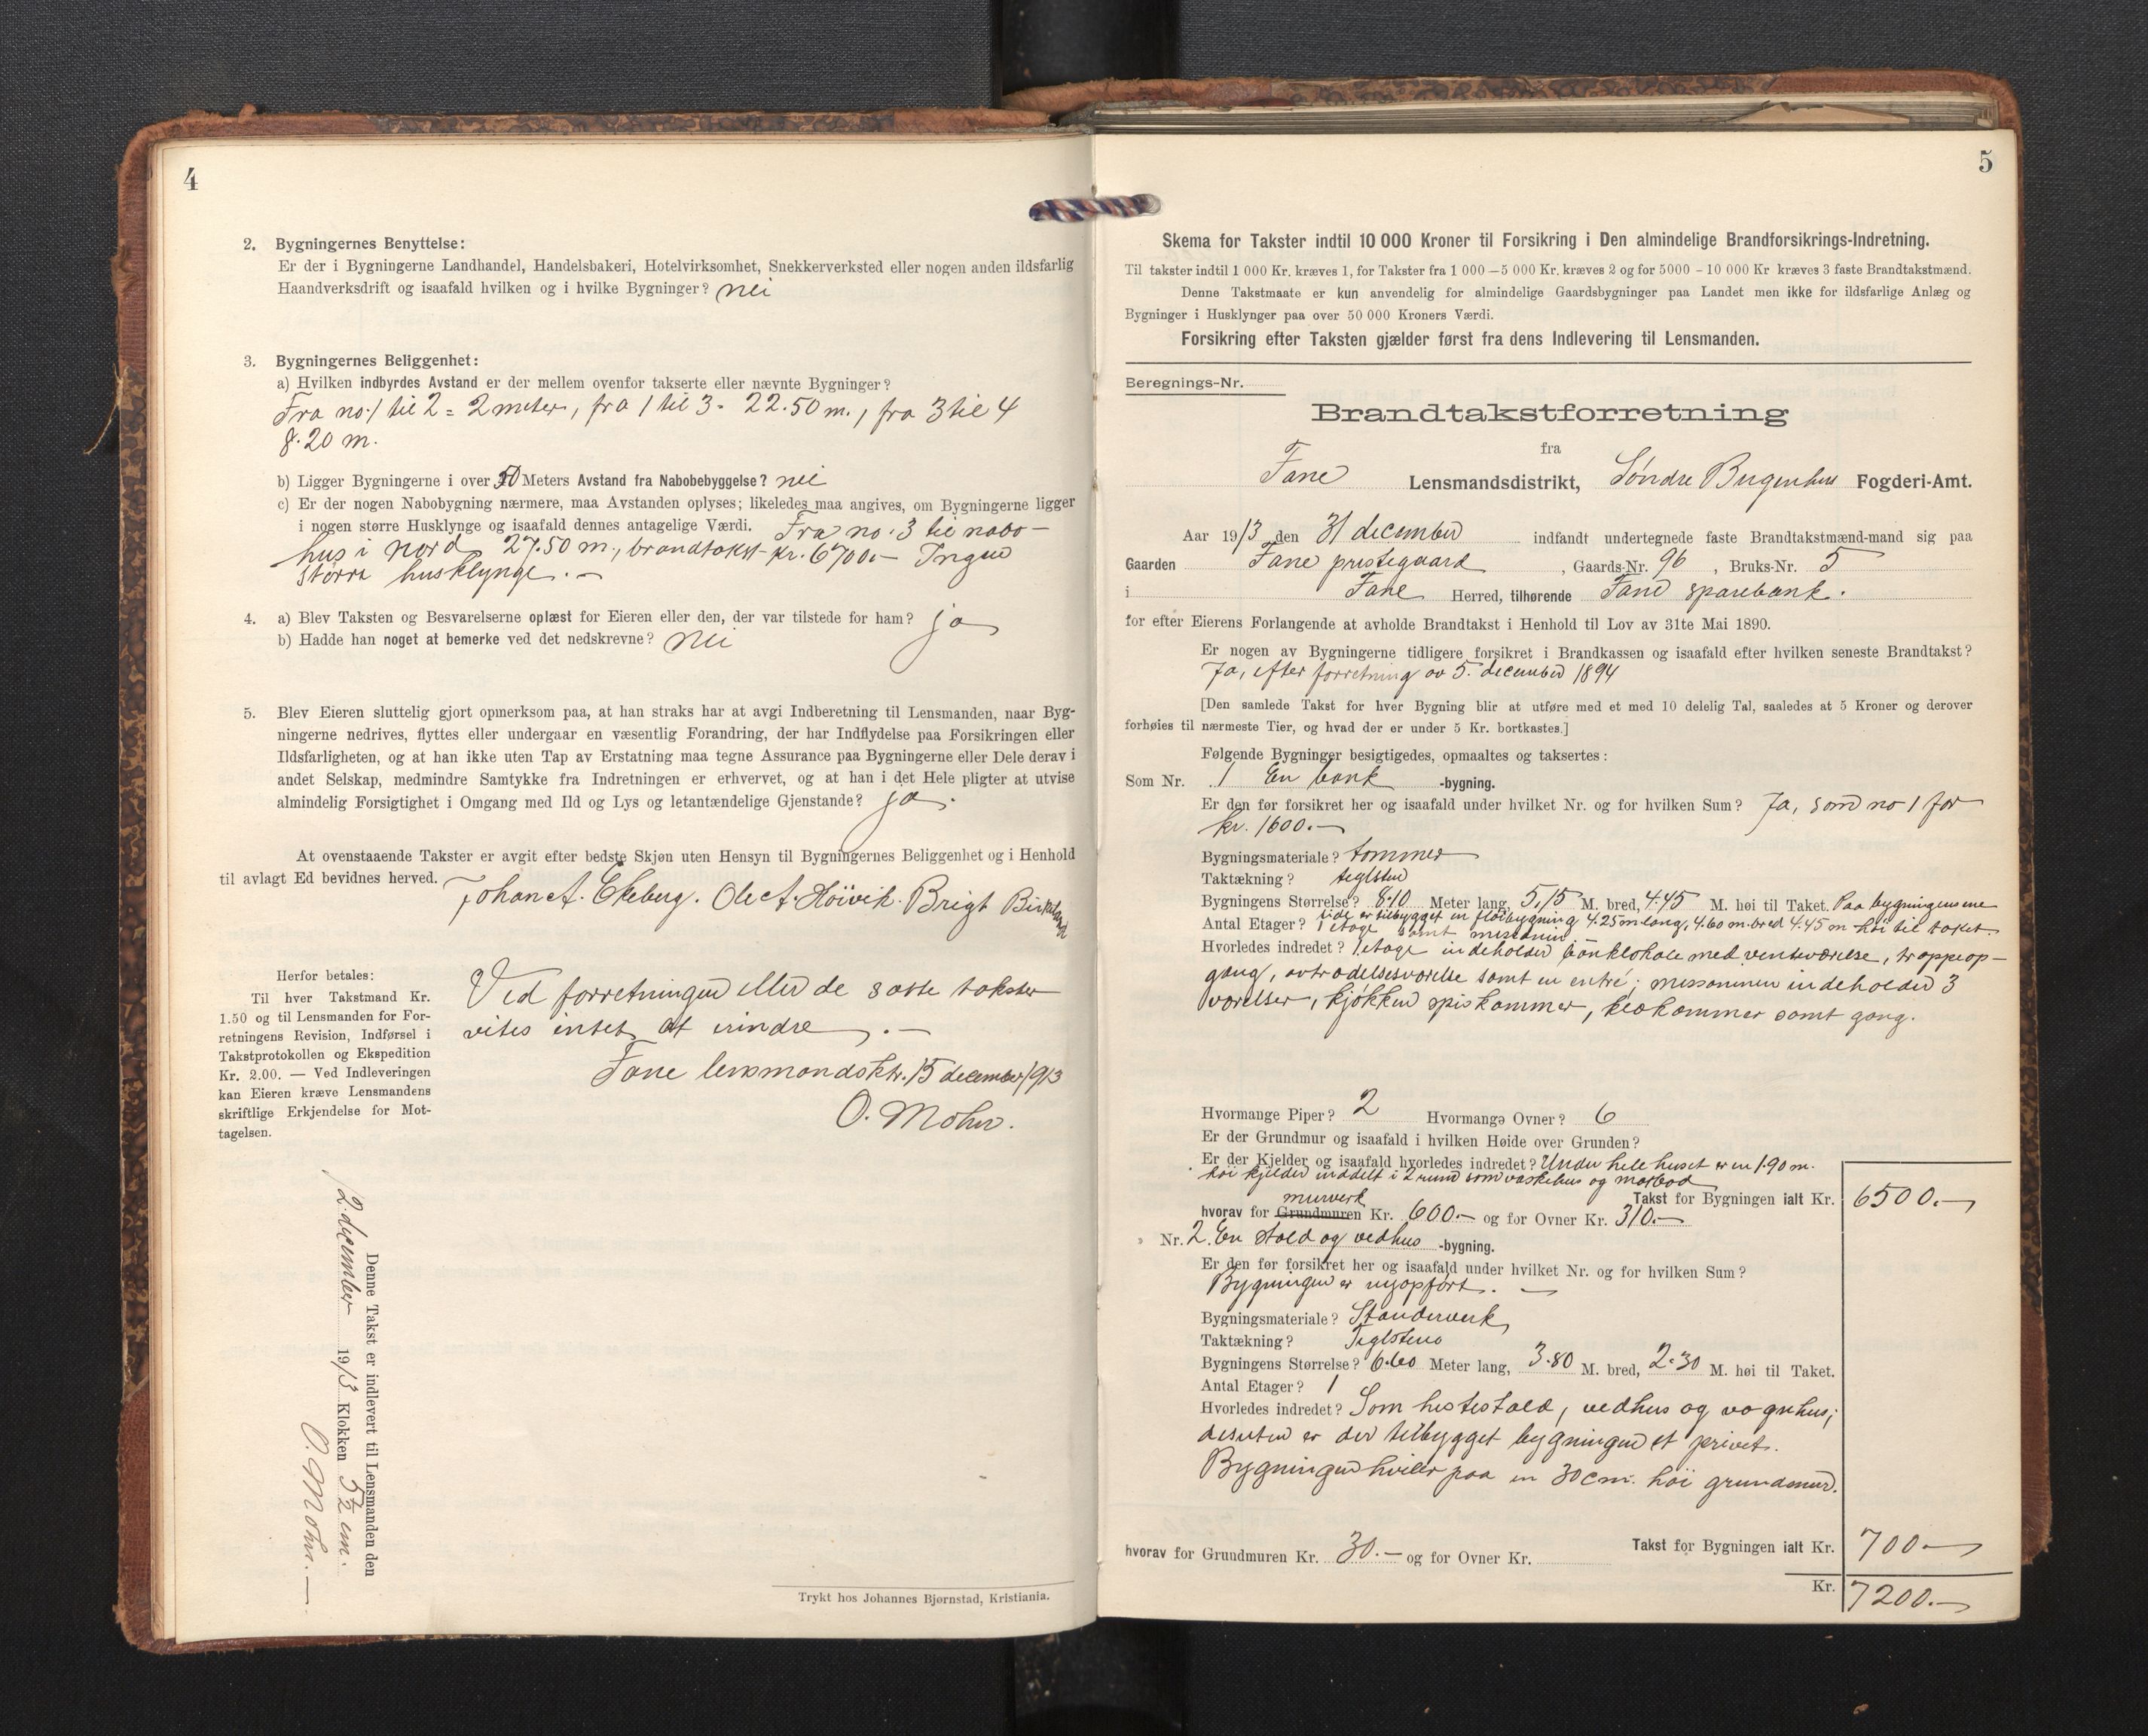 4
2. Bygningernes Benyttelse:
Er der i Bygningerne Landhandel, Handelsbakeri, Hotelvirksomhet, Snekkerverksted eller nogen anden ildsfarlig
Haandverksdrift og isaafald hvilken og i hvilke Bygninger? nei
3. Bygningernes Beliggenhet:
a) Hvilken indbyrdes Avstand er der mellem ovenfor takserte eller nævnte Bygninger?
Fra no. 1 til 2 = 2 meter, fra 1 til 3 - 22.50 m., fra 3 til 4
8.20 m.
b) Ligger Bygningerne i over 50 Meters Avstand fra Nabobebyggelse? nei
c) Er der nogen Nabobygning nærmere, maa Avstanden oplyses; likeledes maa angives, om Bygningerne ligger
i nogen større Husklynge og isaafald dennes antagelige Værdi. Fra no. 3 til nabo-
hus i nord 27.50 m., brandtakst kr. 6700.- Ingen
större husklynge. -
4. a) Blev Taksten og Besvarelserne oplæst for Eieren eller den, der var tilstede for ham? ja
b) Hadde han noget at bemerke ved det nedskrevne? nei
5. Blev Eieren sluttelig gjort opmerksom paa, at han straks har at avgi Indberetning til Lensmanden, naar Byg-
ningerne nedrives, flyttes eller undergaar en væsentlig Forandring, der har Indflydelse paa Forsikringen eller
Ildsfarligheten, og at han ikke uten Tap av Erstatning maa tegne Assurance paa Bygningerne eller Dele derav i
andet Selskap, medmindre Samtykke fra Indretningen er erhvervet, og at han i det Hele pligter at utvise
almindelig Forsigtighet i Omgang med Ild og Lys og letantændelige Gjenstande? ja.
At ovenstaaende Takster er avgit efter bedste Skjøn uten Hensyn til Bygningernes Beliggenhet og i Henhold
til avlagt Ed bevidnes herved.
Johan A. Ekeberg. Ole A. Höivik. Brigt Birkeland
Herfor betales:
Til hver Takstmand Kr.
1.50 og til Lensmanden for For-
retningens Revision, Indførsel i
Takstprotokollen og Ekspedition
Kr. 2.00. — Ved Indleveringen
kan Eieren kræve Lensmandens
skriftlige Erkjendelse for Mot-
tagelsen.
Ved forretningen eller de satte takster
vites intet at erindre. -
Fane lensmandsktr. 15 december 1913
O. Mohn.
Denne Takst er indlevert til Lensmanden den
12. december 1913 Klokken 5½ em.
O. Mohn. -
Trykt hos Johannes Bjørnstad, Kristiania.
5
Skema for Takster indtil 10 000 Kroner til Forsikring i Den almindelige Brandforsikrings-Indretning.
Til takster indtil 1 000 Kr. kræves 1, for Takster fra 1 000 — 5 000 Kr. kræves 2 og for 5000 - 10 000 Kr kræves 3 faste Brandtakstmænd.
Denne Takstmaate er kun anvendelig for almindelige Gaardsbygninger paa Landet men ikke for ildsfarlige Anlæg og
Bygninger i Husklynger paa over 50 000 Kroners Værdi.
Forsikring efter Taksten gjælder først fra dens Indlevering til Lensmanden.
Beregnings-Nr.
Brandtakstforretning
fra
Fane Lensmandsdistrikt, Söndre Bergenhus Fogderi-Amt.
Aar 1913 den 31 december indfandt undertegnede faste Brandtakstmænd-mand sig paa
Gaarden Fane prestegaard, Gaards-Nr. 96, Bruks-Nr. 5
i Fane Herred, tilhørende Fane sparebank.
for efter Eierens Forlangende at avholde Brandtakst i Henhold til Lov av 31te Mai 1890.
Er nogen av Bygningerne tidligere forsikret i Brandkassen og isaafald efter hvilken seneste Brandtakst?
Ja, efter forretning av 5. december 1894
[Den samlede Takst for hver Bygning blir at utføre med et med 10 delelig Tal, saaledes at 5 Kroner og derover
forhøies til nærmeste Tier, og hvad der er under 5 Kr. bortkastes.]
Følgende Bygninger besigtigedes, opmaaltes og taksertes:
Som Nr. 1 En bank -bygning.
Er den før forsikret her og isaafald under hvilket Nr. og for hvilken Sum? Ja, som no 1 for
kr. 1600.-
Bygningsmateriale? tømmer
Taktækning? teglsten
Bygningens Størrelse? 8.10 Meter lang, 5,15 M. bred, 4.45 M. høi til Taket. Paa bygningens ene
side er tilbygget en flöibygning 4.25 m lang, 4.60 m. bred 4.45 m. höi til taket.
Antal Etager? 1 etage samt messanin
Hvorledes indredet? 1 etage indeholder banklokale med venteværelse, trappeop-
gang, avtrædelsesværelse samt en entré; messaninen indeholder 3
værelser, kjøkken spiskammer, klækammer samt gang.
Hvormange Piper? 2 Hvormange Ovner? 6
Er der Grundmur og isaafald i hvilken Høide over Grunden?
Er der Kjelder og isaafald hvorledes indredet? Under hele huset er en 1.90 m.
höi kjelder inddelt i 2 rum som vaskehus og matbod
Takst for Bygningen ialt Kr. 6500.-
hvorav for Grundmuren murverk Kr. 600.- og for Ovner Kr. 310.-
Nr. 2. En stald og vedhus -bygning.
Er den før forsikret her og isaafald under hvilket Nr. og for hvilken Sum?
Bygningen er nyopfört. -
Bygningsmateriale? Standerverk
Taktækning? Teglstens
Bygningens Størrelse? 6.60 Meter lang, 3.80 M. bred, 2.30 M. høi til Taket.
Antal Etager? 1
Hvorledes indredet? Som hestestald, vedhus og vognhus;
desuten er der tilbygget bygningen et privet.
Bygningen hviler paa en 30 cm. höi grundmur.
hvorav for Grundmuren Kr. 30.- og for Ovner Kr.
Takst for Bygningen ialt Kr. 700.-
Kr. 7200.-